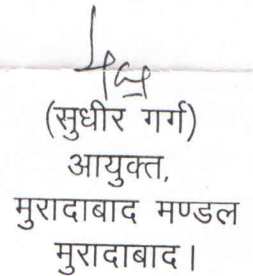 (सुधीर गर्ग)
आयुक्त,
मुरादाबाद मण्डल
मुरादाबाद।